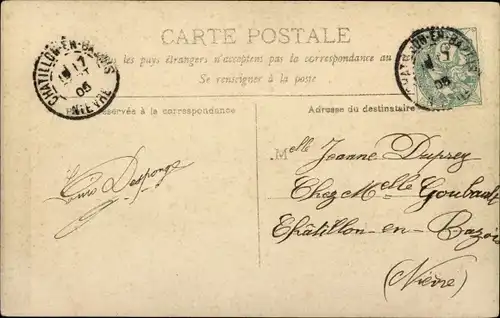 CARTE POSTALE
les pays étrangers n'acceptent pas la correspondance au
Se renseigner à la poste
CHATILLON-EN-BAZOIS
05
NIÈVRE
réservée à la correspondance
Adresse du destinataire
Melle Jeanne Duprez
Chez Melle Goubault
Châtillon-en-Bazois
(Nièvre)